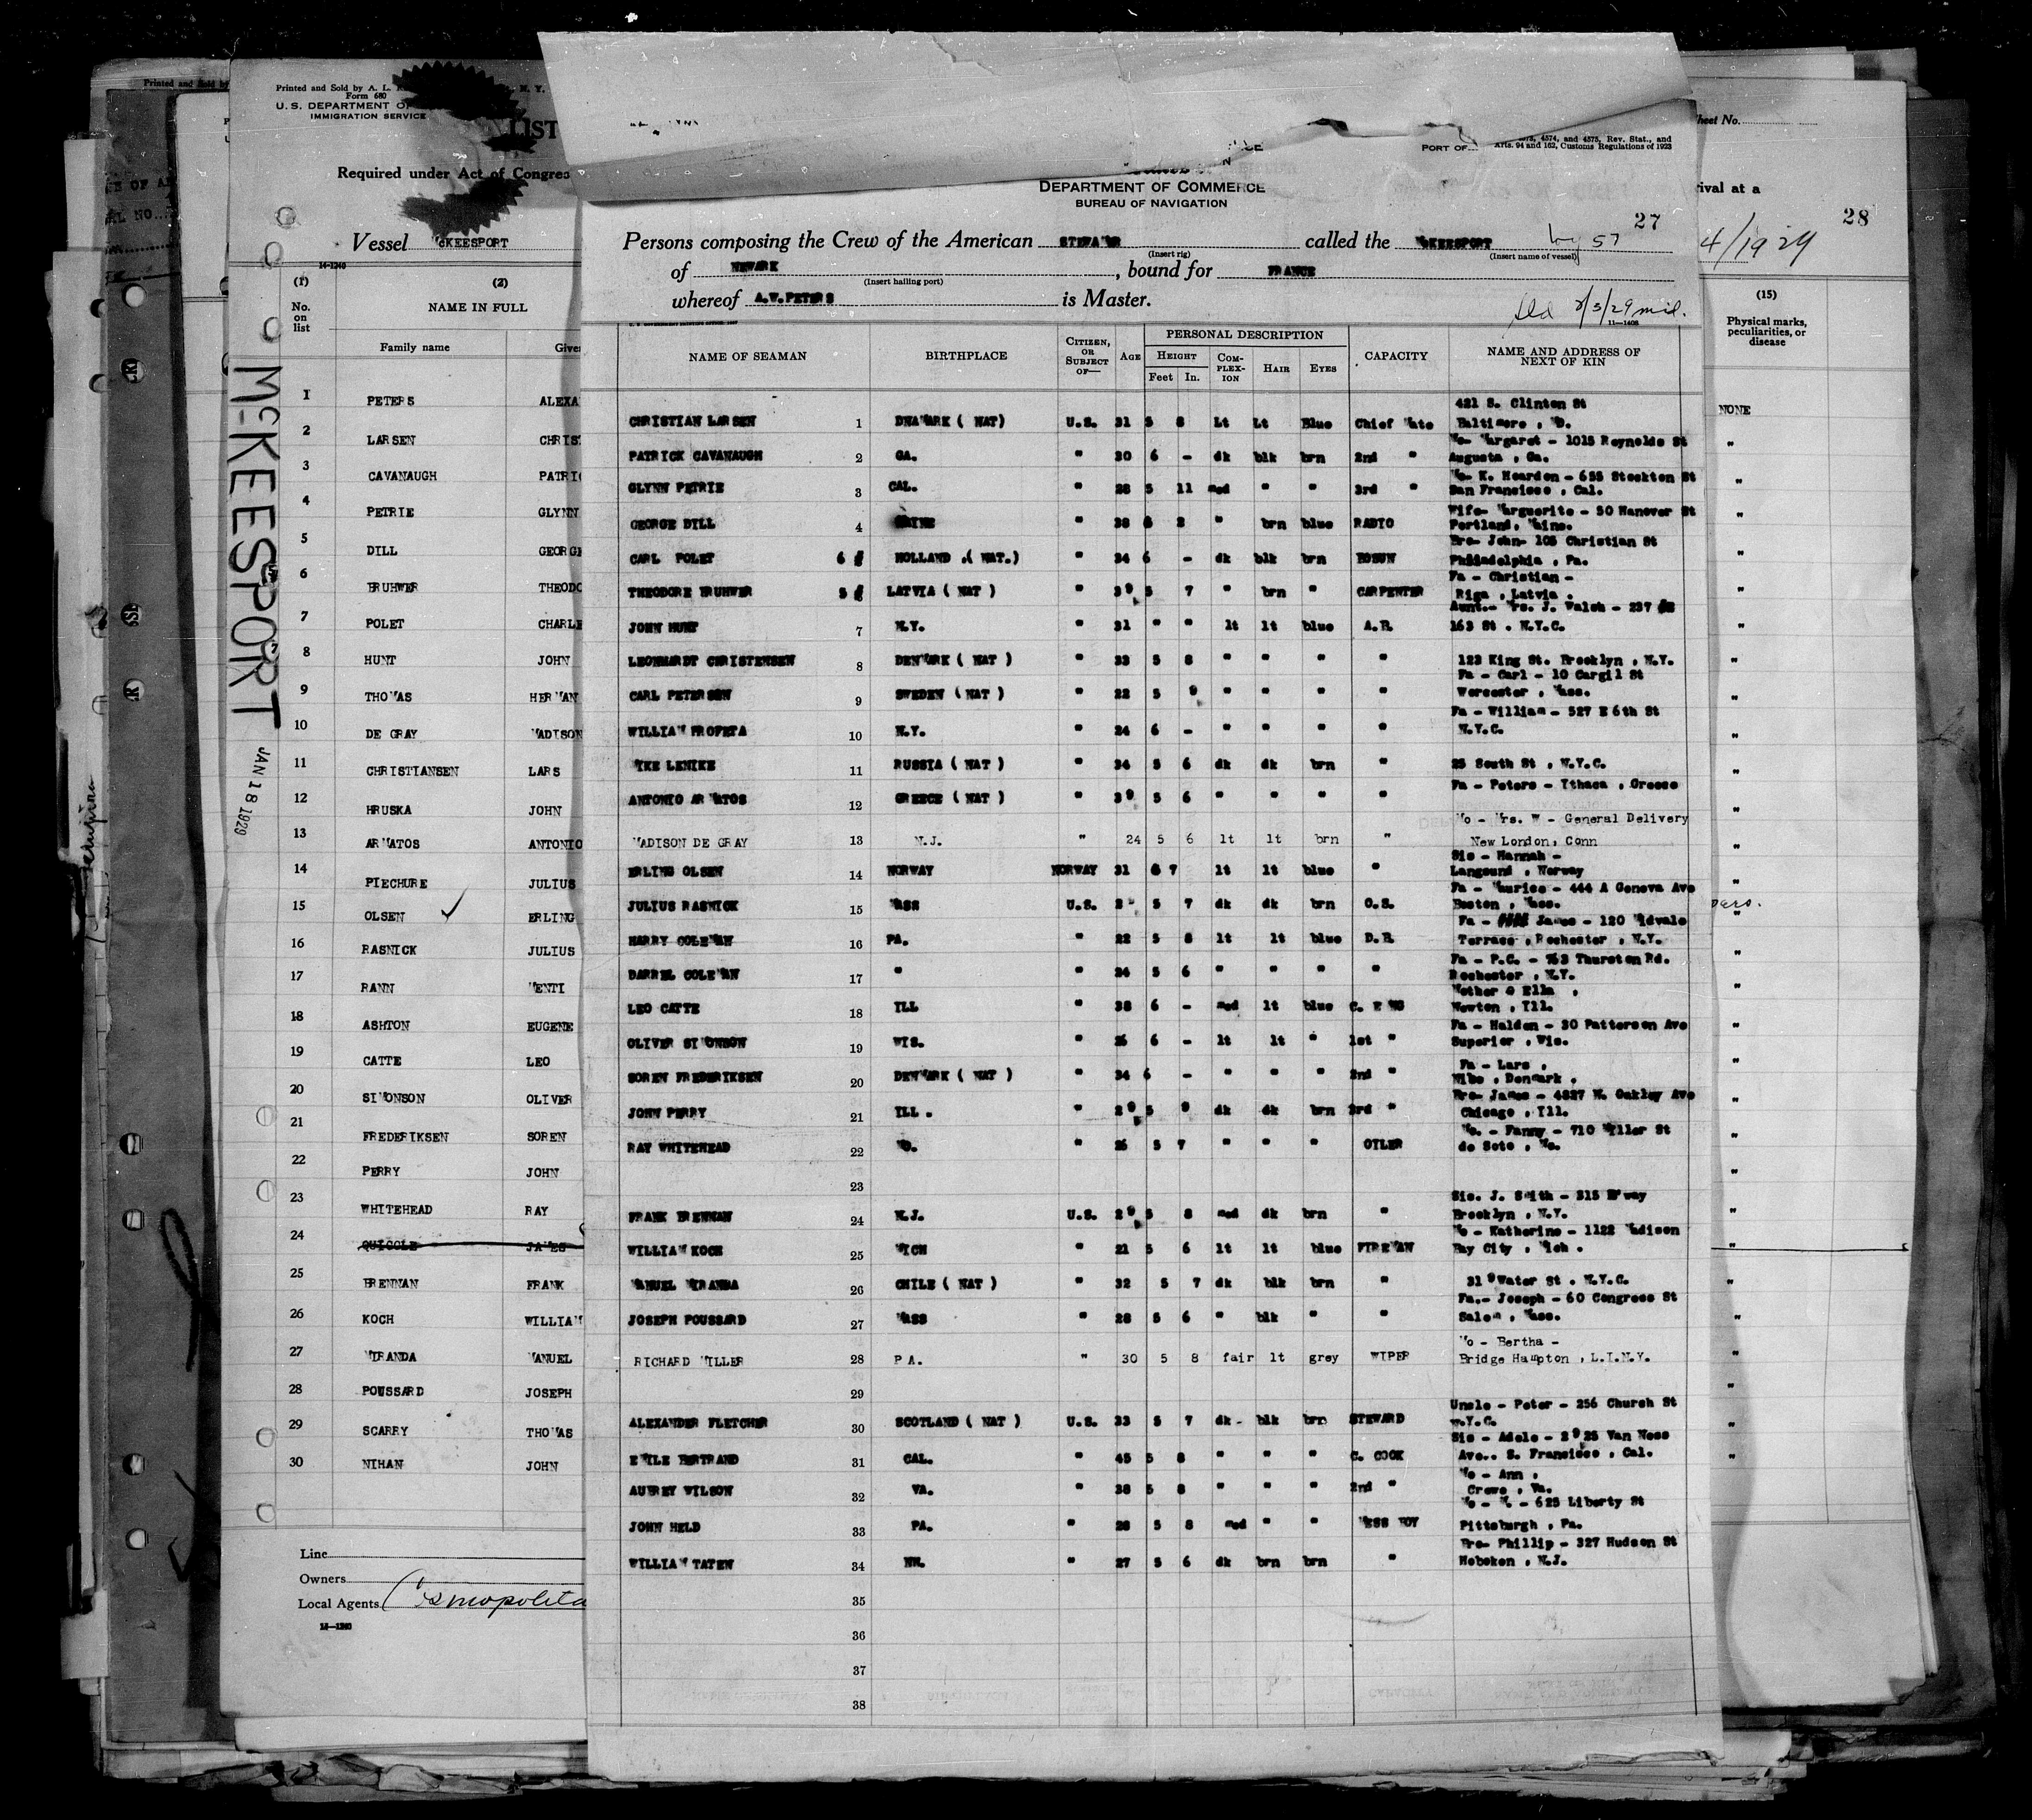 Printed and Sold by
Printed and Sold by A. L.
Form 680
U.S. DEPARTMENT OF
IMMIGRATION SERVICE
LIST
Required under Act of Congres
Vessel McKEESPORT
14-1240
(1) (2)
No. on list
NAME IN FULL
Family name Give
1 PETERS ALEXA
2 LARSEN CHRIST
3 CAVANAUGH PATRIC
4 PETRIE GLYNN
5 DILL GEORGE
6 BRUHWER THEODO
7 POLET CHARLE
8 HUNT JOHN
9 THOMAS HERMAN
10 DE GRAY MADISON
11 CHRISTIANSEN LARS
12 HRUSKA JOHN
13 ARMATOS ANTONIO
14 PIECHURE JULIUS
15 OLSEN ERLING
16 RASNICK JULIUS
17 RANN MENTI
18 ASHTON EUGENE
19 CATTE LEO
20 SIMONSON OLIVER
21 FREDERIKSEN SOREN
22 PERRY JOHN
23 WHITEHEAD RAY
24 QUIGGLE JAMES
25 BRENNAN FRANK
26 KOCH WILLIAM
27 MIRANDA MANUEL
28 POUSSARD JOSEPH
29 SCARRY THOMAS
30 NIHAN JOHN
Line
Owners
Local Agents Cosmopolita
14-1240
McKEESPORT
JAN 18 1929
PORT OF
4573, 4574, and 4575, Rev. Stat., and
Arts. 94 and 162, Customs Regulations of 1923
DEPARTMENT OF COMMERCE
BUREAU OF NAVIGATION
27
Persons composing the Crew of the American STEAMER called the McKEESPORT
(Insert rig) (Insert name of vessel)
of NEWARK, bound for FRANCE
(Insert hailing port)
whereof A.W.PETERS is Master.
11-1408
NAME OF SEAMAN BIRTHPLACE CITIZEN, OR SUBJECT OF— AGE PERSONAL DESCRIPTION CAPACITY NAME AND ADDRESS OF NEXT OF KIN
HEIGHT COMPLEXION HAIR EYES
Feet In.
421 S. Clinton St
CHRISTIAN LARSEN 1 DNAMARK ( NAT) U.S. 31 5 8 Lt Lt Blue Chief Mate Baltimore , MD.
Mo- Margaret - 1015 Reynolds St
PATRICK CAVANAUGH 2 GA. " 30 6 - dk blk brn 2nd " Augusta , Ga.
Mo- K. Hearden - 655 Stockton St
GLYNN PETRIE 3 CAL. " 28 5 11 med " " 3rd " San Francisco , Cal.
Wife- Marguerite - 50 Hanover St
GEORGE DILL 4 MAINE " 38 6 2 " brn blue RADIO Portland, Maine.
Bro- John- 105 Christian St
CARL POLET 6 HOLLAND .( NAT.) " 34 6 - dk blk brn BOSUN Philadelphia , Pa.
Fa - Christian -
THEODORE BRUHWER 5 LATVIA ( NAT ) " 39 5 7 " brn " CARPENTER Riga , Latvia .
Aunt.- Mrs. J. Walsh - 237
JOHN HUNT 7 N.Y. " 31 " " lt lt blue A.B. 163 St . N.Y.C.
LEONHARDT CHRISTENSEN 8 DENMARK ( NAT ) " 33 5 8 " " " " 123 King St. Brooklyn , N.Y.
Fa - Carl - 10 Cargil St
CARL PETERSEN 9 SWEDEN ( NAT ) " 22 5 9 " " " " Worcester , Mass.
Fa - William - 527 E 6th St
WILLIAM PROFETA 10 N.Y. " 24 6 - " " " " N.Y.C.
MIKE LENIKE 11 RUSSIA ( NAT ) " 34 5 6 dk dk brn " 25 South St , N.Y.C.
Fa - Peters - Ithaca , Greece
ANTONIO ARMATOS 12 GREECE ( NAT ) " 39 5 6 " " " "
Mo - Mrs. W - General Delivery
MADISON DE GRAY 13 N.J. " 24 5 6 lt lt brn " New London, Conn
Sis - Hannah -
ERLING OLSEN 14 NORWAY NORWAY 31 6 7 lt lt blue " Langsund , Norway
Fa - Maurice - 444 A Geneva Ave
JULIUS RASNICK 15 MASS U.S. 5 7 dk dk brn O.S. Boston , Mass.
Fa - James - 120 Midvale
HARRY COLEMAN 16 PA. " 22 5 8 lt lt blue D.B. Terrace , Rochester , N.Y.
Fa - P.C. - 763 Thurston Rd.
DARREL COLEMAN 17 " " 24 5 6 " " " " Rochester , N.Y.
Mother Ella ,
LEO CATTE 18 ILL " 38 6 - med lt blue C. ENG Newton , Ill.
Fa - Halden - 30 Patterson Ave
OLIVER SIMONSON 19 WIS. " 26 6 - lt lt " 1st " Superior , Wis.
Fa - Lars ,
SOREN FREDERIKSEN 20 DENMARK ( NAT ) " 34 6 - " " " 2nd " Nibe , Denmark .
Bro- James - 4827 N. Oakley Ave
JOHN PERRY 21 ILL . " 29 5 9 dk dk brn 3rd " Chicago , Ill.
Mo. - Fanny - 710 Miller St
RAY WHITEHEAD 22 MO. " 26 5 7 " " " OILER de Soto , Mo.
23
Sis. J. Smith - 315 B'way
FRANK BRENNAN 24 N.J. U.S. 29 5 8 med dk brn " Brooklyn , N.Y.
Mo - Katherine - 1122 Madison
WILLIAM KOCH 25 MICH " 21 5 6 lt lt blue FIREMAN Bay City , Mich .
MANUEL MIRANDA 26 CHILE ( NAT ) " 32 5 7 dk blk brn " 319 Water St . N.Y.C.
Fa.- Joseph - 60 Congress St
JOSEPH POUSSARD 27 MASS " 28 5 6 " blk " " Salem , Mass.
Mo - Bertha -
RICHARD MILLER 28 PA. " 30 5 8 fair lt grey WIPER Bridge Hampton , L.I.N.Y.
29
Uncle - Peter - 256 Church St
ALEXANDER FLETCHER 30 SCOTLAND ( NAT ) U.S. 33 5 7 dk - blk brn STEWARD N.Y.C.
Sis - Adele - 2925 Van Ness
EMILE BERTRAND 31 CAL. " 45 5 8 " " " C. COOK Ave.. S. Francisco , Cal.
Mo - Ann ,
AUBREY WILSON 32 VA. " 38 5 8 " " " 2nd " Crewe , Va.
Mo - M. - 625 Liberty St
JOHN HELD 33 PA. " 28 5 8 med " " MESS BOY Pittsburgh , Pa.
Bro- Phillip - 327 Hudson St
WILLIAM TATEN 34 " 27 5 6 dk brn brn " Hoboken , N.J.
35
36
37
38
Sheet No.
rival at a
28
4/1929
(15)
Physical marks, peculiarities, or disease
NONE